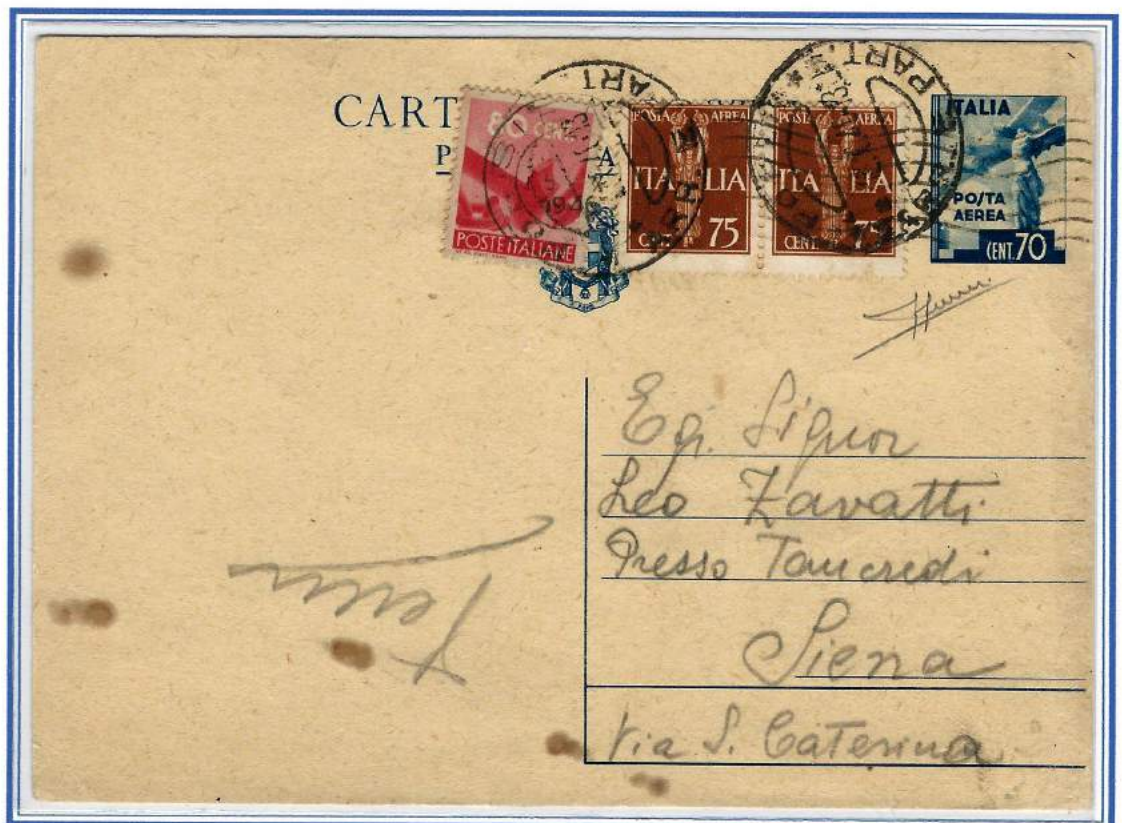 CART
P A
80 CENT.
POSTE ITALIANE
POSTA AEREA
ITALIA
CENT. 75
POSTA AEREA
ITALIA
CENT. 75
ITALIA
POSTA
AEREA
CENT. 70
PART.
1946
ARR
PART.
Eg. Signor
Leo Zavatti
Presso Tancredi
Siena
Via S. Caterina